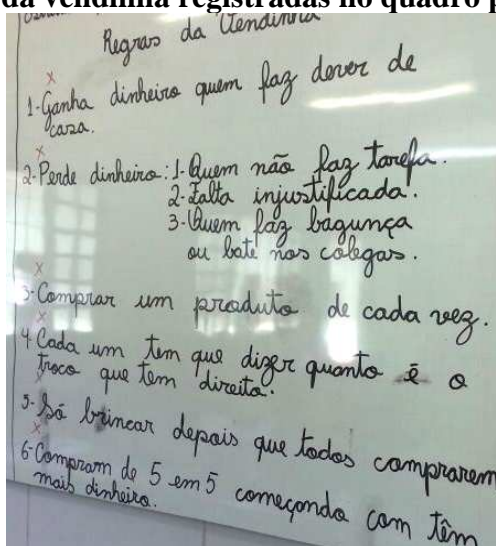 da vendinha registradas no quadro p
Regras da Vendinha
1-Ganha dinheiro quem faz dever de
casa.
2-Perde dinheiro: 1-Quem não faz tarefa.
2-Falta injustificada.
3-Quem faz bagunça
ou bate nos colegas.
3-Comprar um produto de cada vez.
4 Cada um tem que dizer quanto é o
troco que tem direito.
5-Só brincar depois que todos comprarem
6-Compram de 5 em 5 começando com têm
mais dinheiro.